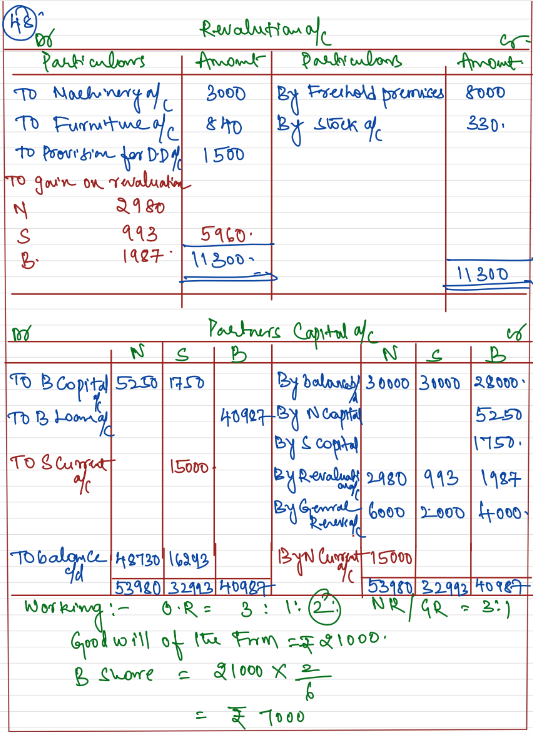 48
Revalution a/c
Dr Cr
Particulars Amount Particulars Amount
To Machinery a/c 3000 By Freehold premises 8000
To Furniture a/c 840 By Stock a/c 330.
To Provision for D.D a/c 1500
To gain on revaluation
N 2980
S 993 5960.
B. 1987. 11300. 11300
Dr Partners Capital a/c Cr
N S B N S B
To B Capital a/c 5250 1750 By balance b/d 30000 30000 28000.
To B Loan a/c 40987 By N Capital 5250
By S Capital 1750.
To S Current a/c 15000 By Revaluation a/c 2980 993 1987
By General Reserve a/c 6000 2000 4000.
To balance c/d 48730 16243 By N Current a/c 15000
53980 32993 40987 53980 32993 40987
Working:- O.R = 3 : 1 : 2 NR/GR = 3:1
Goodwill of the Firm = ₹ 21000.
B Share = 21000 × 2/6
= ₹ 7000